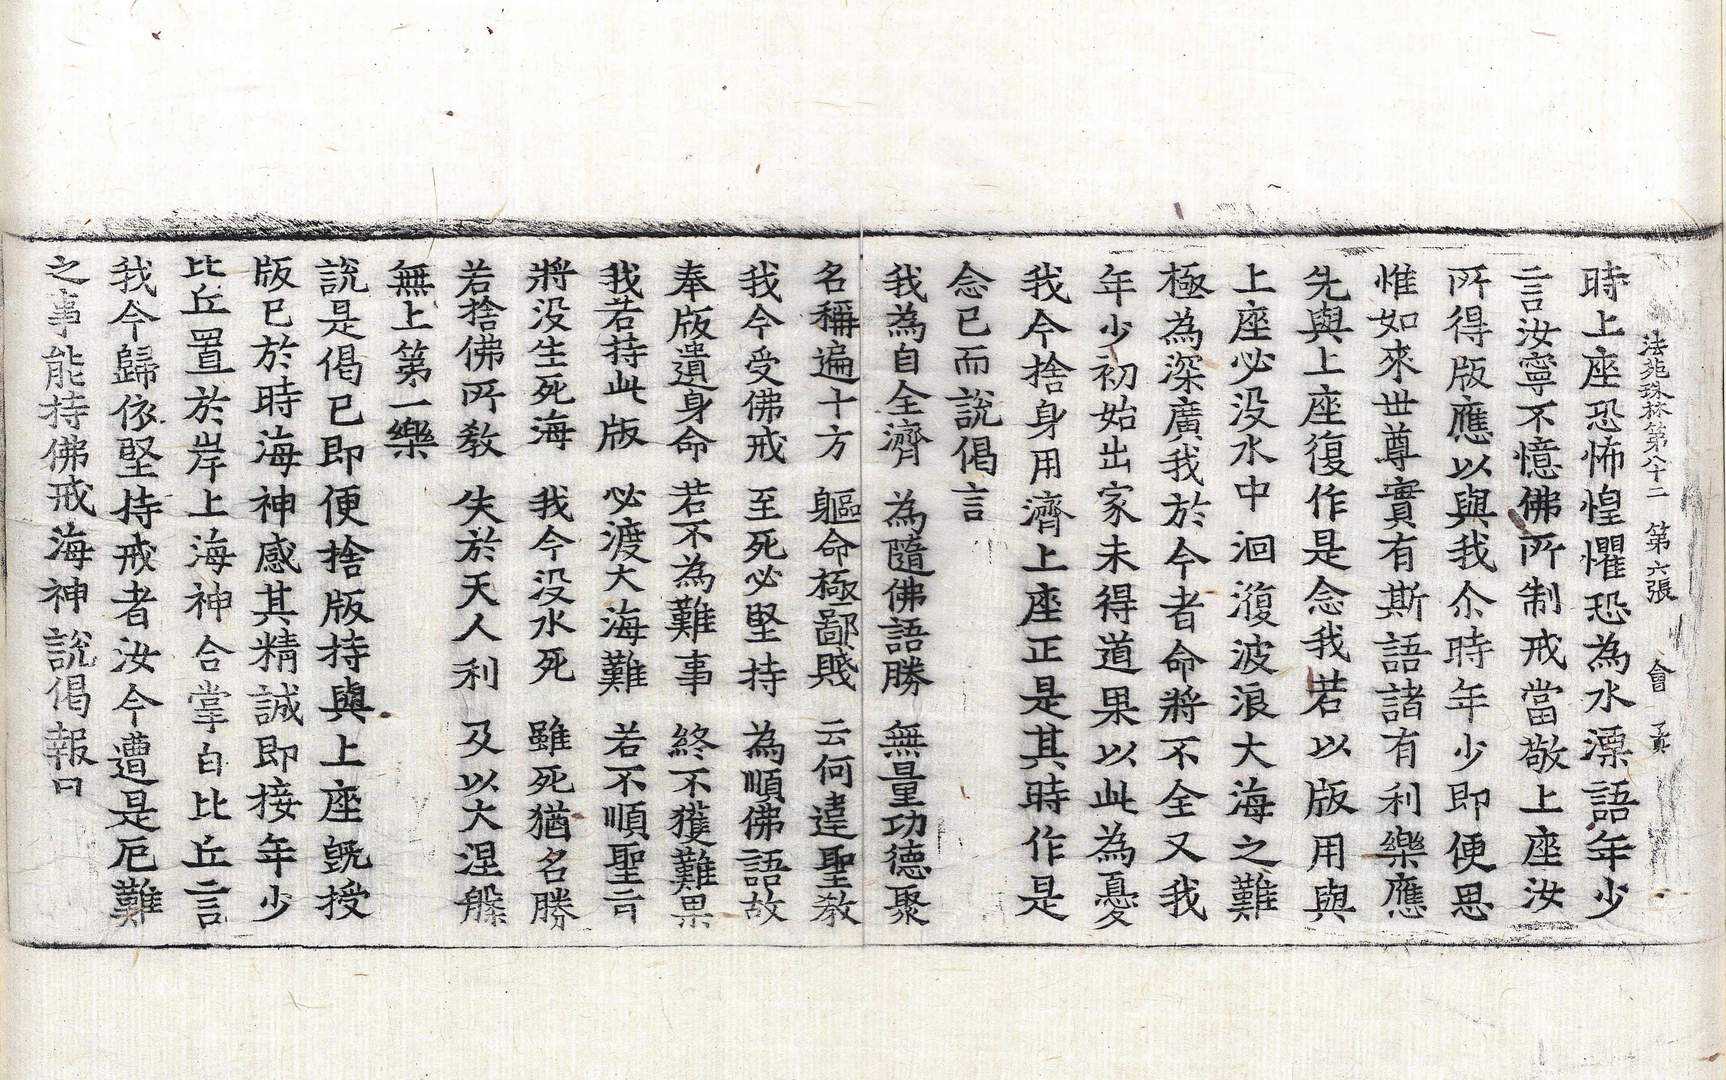 法苑珠林第八十二 第六張 會 員
時上座恐怖惶懼恐為水漂語年少
言汝寧不憶佛所制戒當敬上座汝
所得版應以與我尒時年少即便思
惟如來世尊實有斯語諸有利樂應
先與上座復作是念我若以版用與
上座必没水中洄澓波浪大海之難
極為深廣我於今者命將不全又我
年少初始出家未得道果以此為憂
我今捨身用濟上座正是其時作是
念已而說偈言
我為自全濟 為隨佛語勝 無量功德聚
名稱遍十方 軀命極鄙賤 云何違聖教
我今受佛戒 至死必堅持 為順佛語故
奉版遺身命 若不為難事 終不獲難果
我若持此版 必渡大海難 若不順聖言
將没生死海 我今没水死 雖死猶名勝
若捨佛所教 失於天人利 及以大涅槃
無上第一樂
說是偈已即便捨版持與上座旣授
版已於時海神感其精誠即接年少
比丘置於岸上海神合掌白比丘言
我今歸依堅持戒者汝今遭是厄難
之事能持佛戒海神說偈報曰